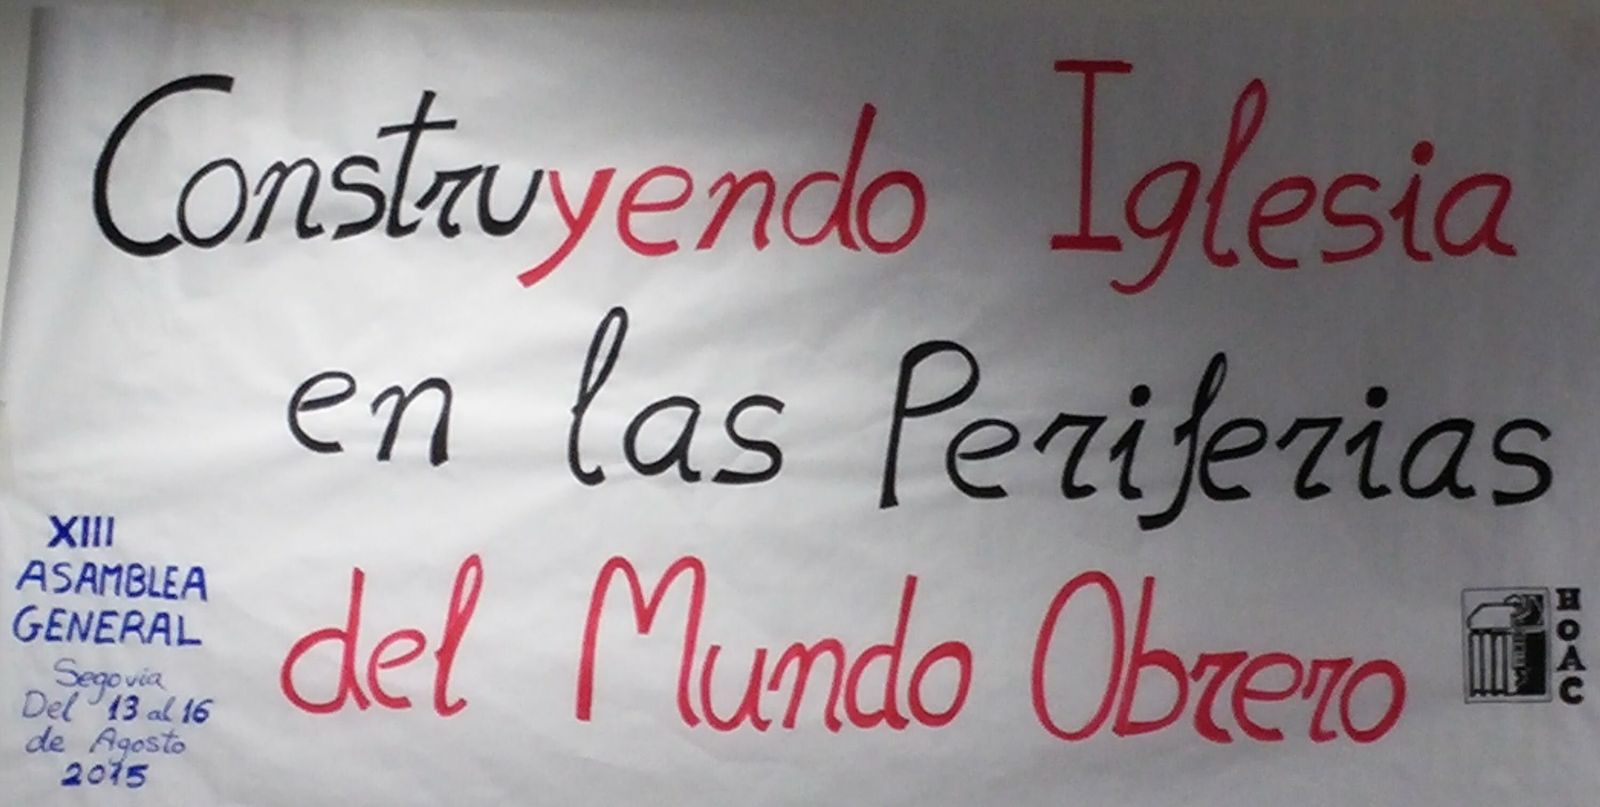 Construyendo Iglesia
en las Periferias
del Mundo Obrero
XIII
ASAMBLEA
GENERAL
Segovia
Del 13 al 16
de Agosto
2015
HOAC